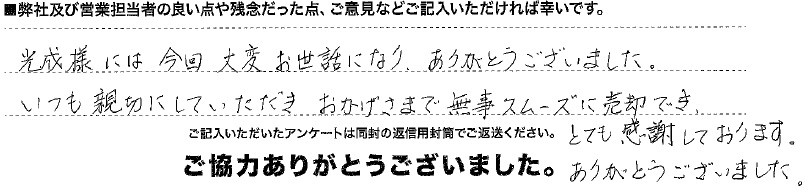 ■弊社及び営業担当者の良い点や残念だった点、ご意見などご記入いただければ幸いです。
光成様には今回大変お世話になり、ありがとうございました。
いつも親切にしていただき、おかげさまで無事スムーズに売却でき、
とても感謝しております。
ありがとうございました。
ご記入いただいたアンケートは同封の返信用封筒でご返送ください。
ご協力ありがとうございました。